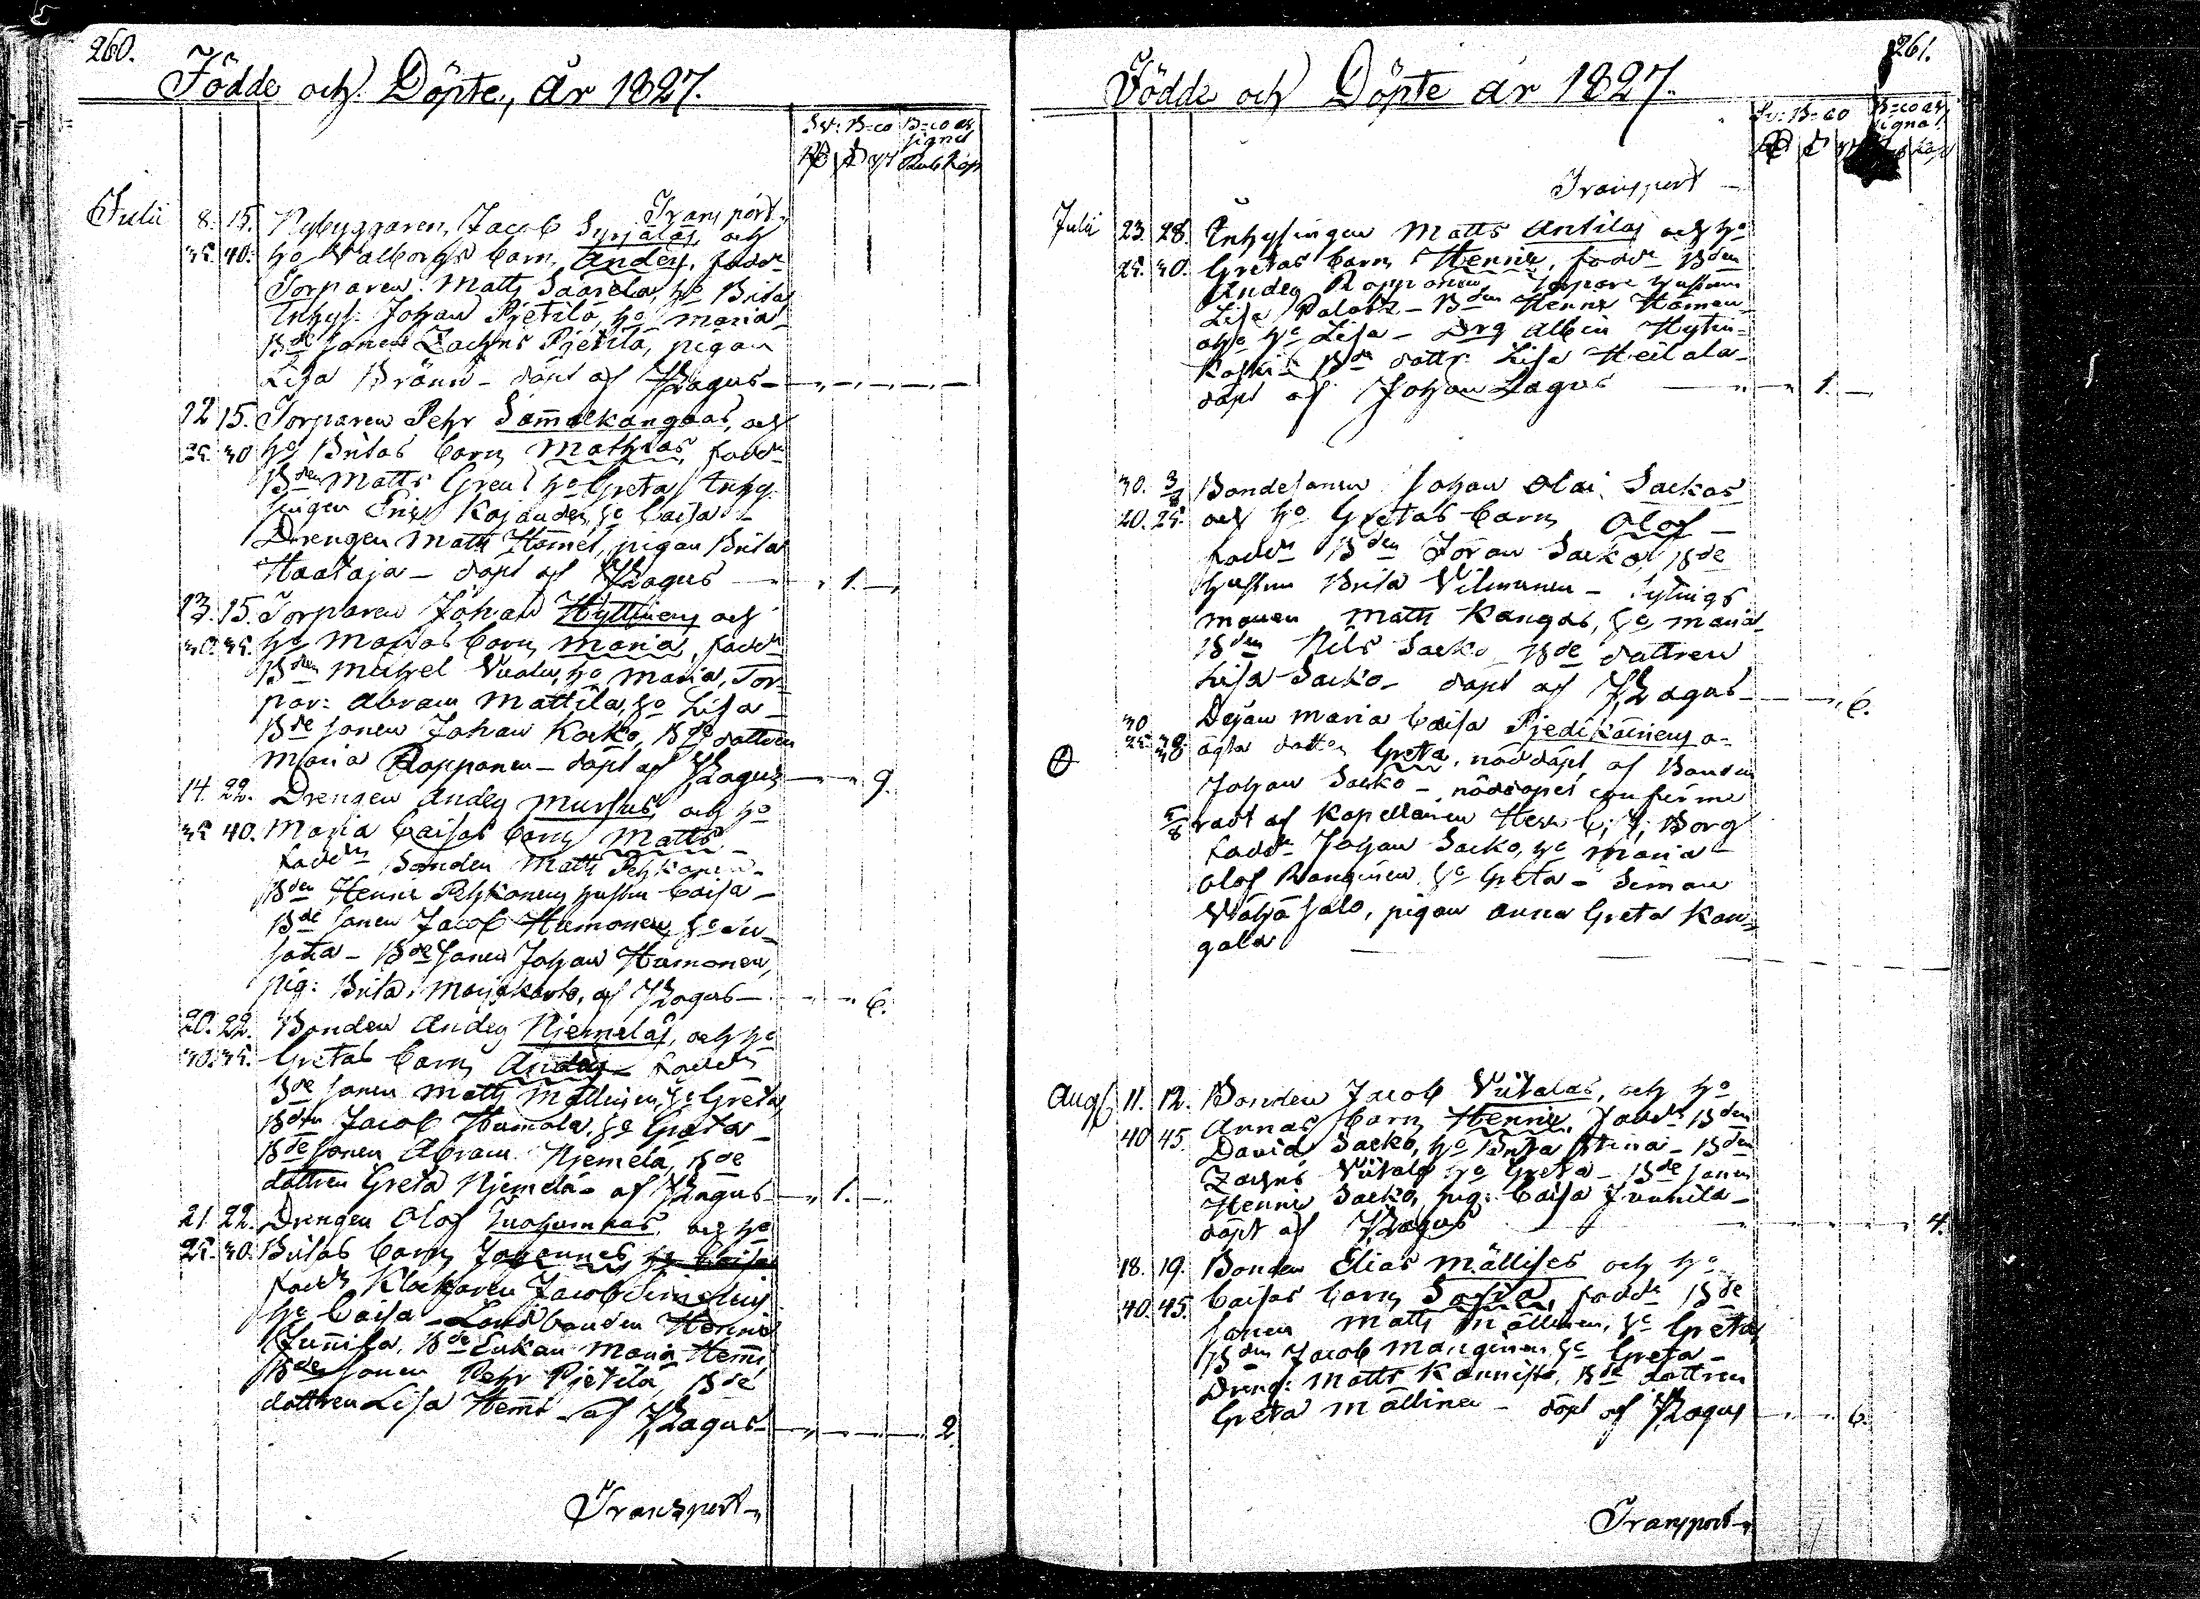 260.
Födde och Döpte, år 1827.
Sv: B=co B=co as
signa
Rub Kop
Transport
Julii 8. 15. Nybyggaren, Jacob Syrjälas, och
35. 40. ho Walborgs barn, Anders, fadd:
Torparen Matts Saarela, ho Brita
Inhys: Johan Pjetilä, ho Maria
Bde sonen Zachris Pjetilä, pigan
Lisa Brännö - döpt af JLagus
12 15. Torparen Pehr Sam̄alkangas, och
25. 30 ho Britas barn Mathias, fadd:
Bden Matts Greus ho Greta Inhy-
singen Eric Kajander, ho Caisa
Drengen Matts Häm̄et, pigan Brita
Haataja - döpt af JLagus 1.
13. 15. Torparen Johan Hyttinens och
30. 35. ho Marias barn, Maria, fadd:
Bden Michel ho Maria, Tor-
par: Abram Mattila, ho Lisa
Bde sonen Johan Karko, Bde dottren
Maria Ropponen - döpt af JLagus 9.
14. 22. Drengen Anders Mursus, och ho
35 40. Maria Caisas barn Matts
fadd: Bonden Matts Pehkonen
Bden Henric Pehkonens hustru Caisa
Bde sonen Jacob Hamonen, ho Su-
sana - Bde sonen Johan Hamonen,
pig: Brita Marjakarko, af JLagus 6.
20. 22. Bonden Anders Njemeläs, och ho
30. 35. Gretas barn, Anders fadd:
Bde sonen Matts Mällinen, ho Greta
Bden Jacob Hamala, ho Greta
Bde sonen Abram Njemelä, Bde
dottren Greta Njemelä - af JLagus 1.
21. 22. Drengen Olof och ho
25. 30. Britas barn, Johannes
fadd: Klockaren Jacob Simelius
ho Caisa - Landbonden Henric
Jun̄ila, Bde Enkan Maria Hem̄i
Bde sonen Pehr Pjetilä, Bde
dottren Lisa Hem̄i - af JLagus 2.
Transport
261.
Födde och Döpte år 1827.
Sv: B=co B=co as
signa:
Transport
Julii 23. 28. Inhysingen Matts Antilas och ho
25. 30. Gretas barn Henric, fadd: Bden
Anders Ropponen Torpare hustrun
Lisa Palola - Bden Henric Hämen-
aho ho Lisa - Drg Albin Hytin-
koski Bde dottr: Lisa Heilala
döpt af Johan Lagus 1.
30. 3/8 Bondesonen Johan Olai Sarkos
20. 25. och ho Gretas barn Olof
fadd: Bden Jöran Sarko, Bde
hustrun Brita Vilmunen - Sytnings
manen Matts Kangas, ho Maria
Bden Nils Sarko, Bde dottren
Lisa Sarko - döpt af JLagus 6.
30. Dejan Maria Caisa Pjedikäinens o-
25. 30 ägta dotter, Greta, nöddöpt af Bonden
Johan Sarko - nöddopet confirme
5/8 radt af Kapellanen Herr C: J: Borg
fadd: Johan Sarko, ho Maria
Olof Ranginen ho Greta - Simon
Vähäsalo, pigan Anna Greta Kan-
gala
Aug 11. 12. Bonden Jacob Viitalas, och ho
40. 45. Annas barn Henric, fadd: Bden
David Sarko, ho Brita Stina - Bden
Zachris Viitala ho Greta - Bde sonen
Henric Sarko, pig: Caisa Junnila
döpt af JLagus 4.
18. 19. Bonden Elias Mällises och ho
40. 45. Caisas barn, Sofia, fadd: Bde
sonen Matts Mällinen, ho Greta
Bden Jacob Manginen ho Greta
Dreng: Matts Kannisto, Bde dottren
Greta Mällinen - döpt af JLagus 6.
Transport